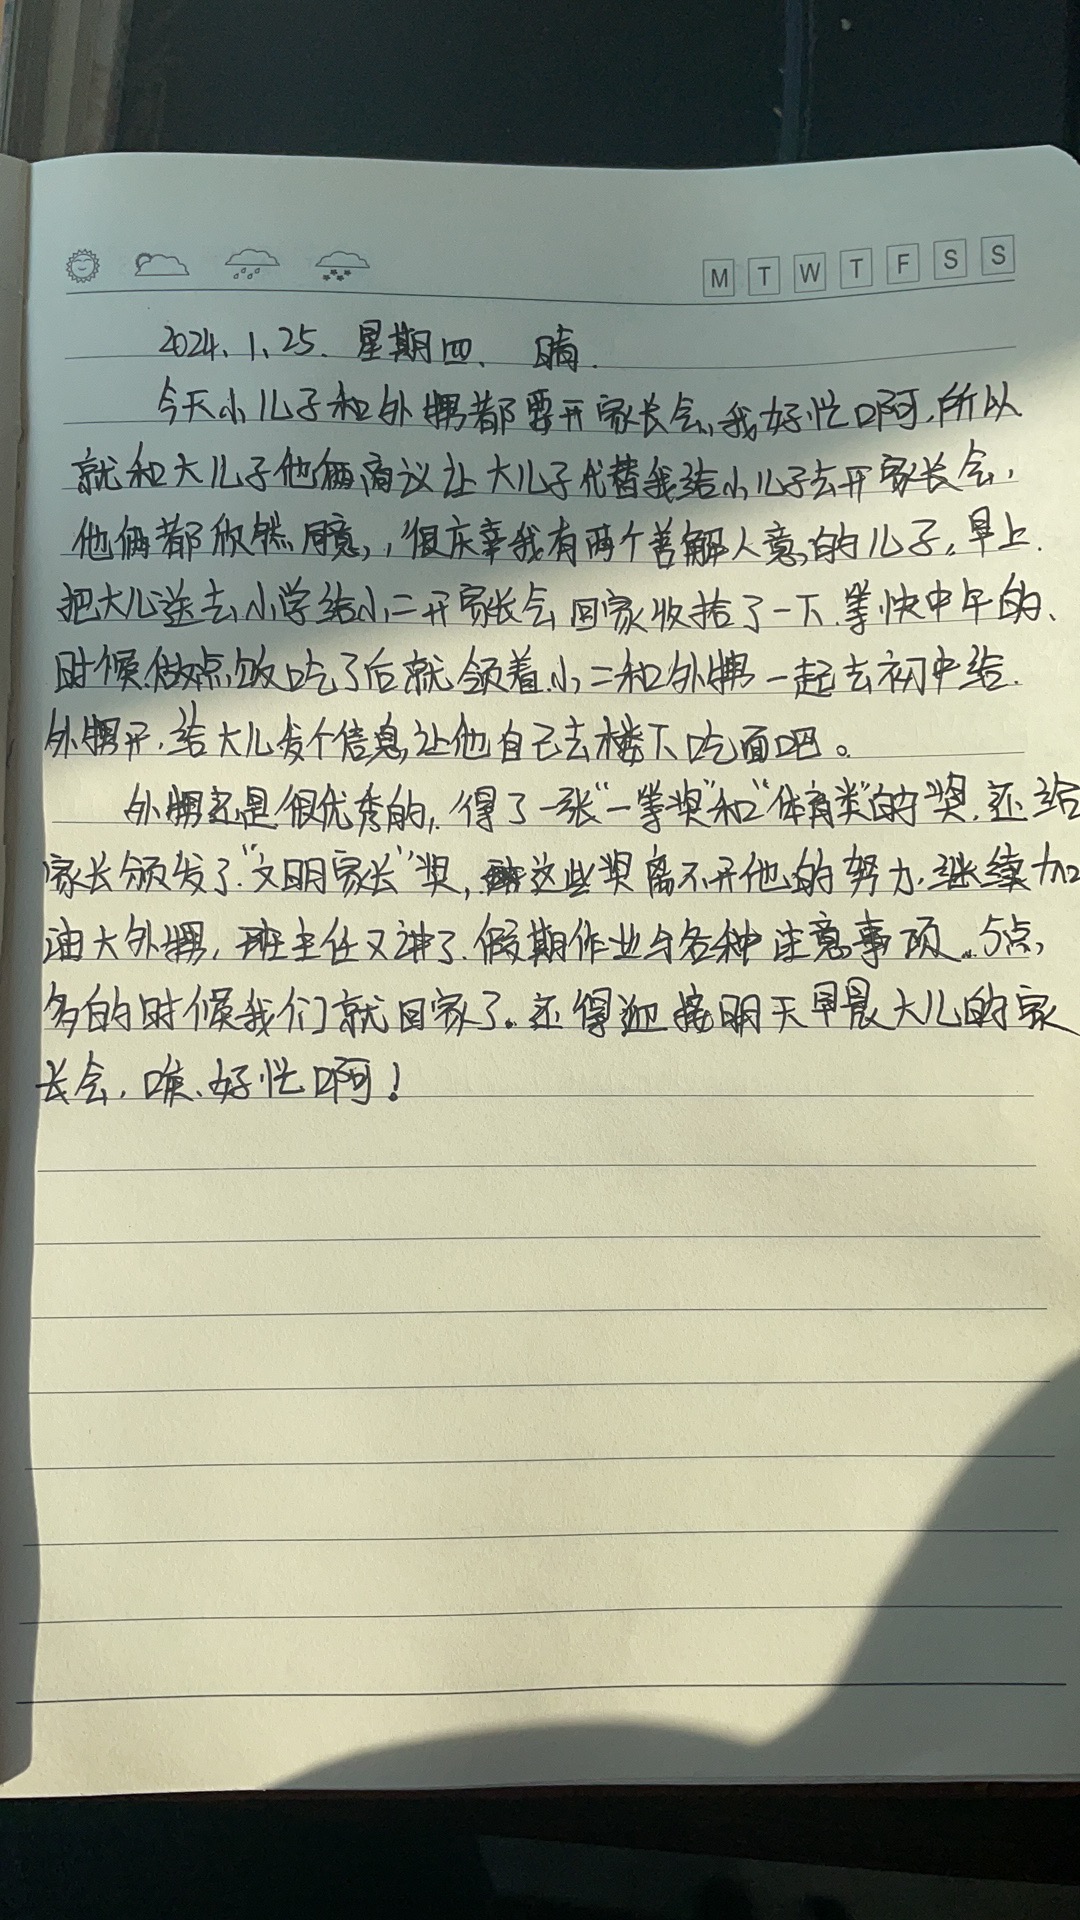 M T W T F S S
2024、1、25. 星期四、 晴.
今天小儿子和外甥都要开家长会,我好忙啊,所以
就和大儿子他俩商议让大儿子代替我给小儿子去开家长会,
他俩都欣然同意,,很庆幸我有两个善解人意的儿子,早上
把大儿送去小学给小二开家长会,回家收拾了一下、等快中午的、
时候,做点饭吃了后就领着小二和外甥一起去初中给
外甥开,给大儿发个信息,让他自己去楼下吃面吧。
外甥还是很优秀的,得了一张“一等奖”和“体育类”的奖,还给
家长颁发了“文明家长”奖,这些奖离不开他的努力,继续加
油大外甥,班主任又讲了假期作业与各种注意事项..5点,
多的时候我们就回家了。还得迎接明天早晨大儿的家
长会,唉、好忙啊!